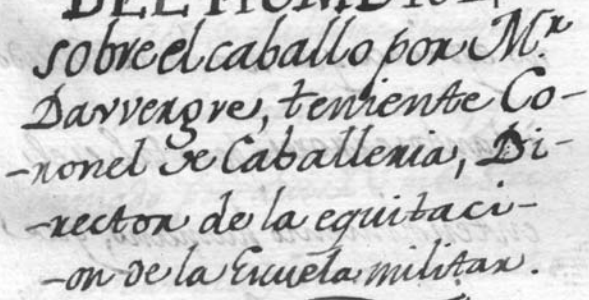 DEL HOMBRE,
sobre el caballo por Mr.
Davvergve, teniente Co-
-ronel de Caballeria, Di-
-rector de la equitaci-
-on de la Escuela militar.